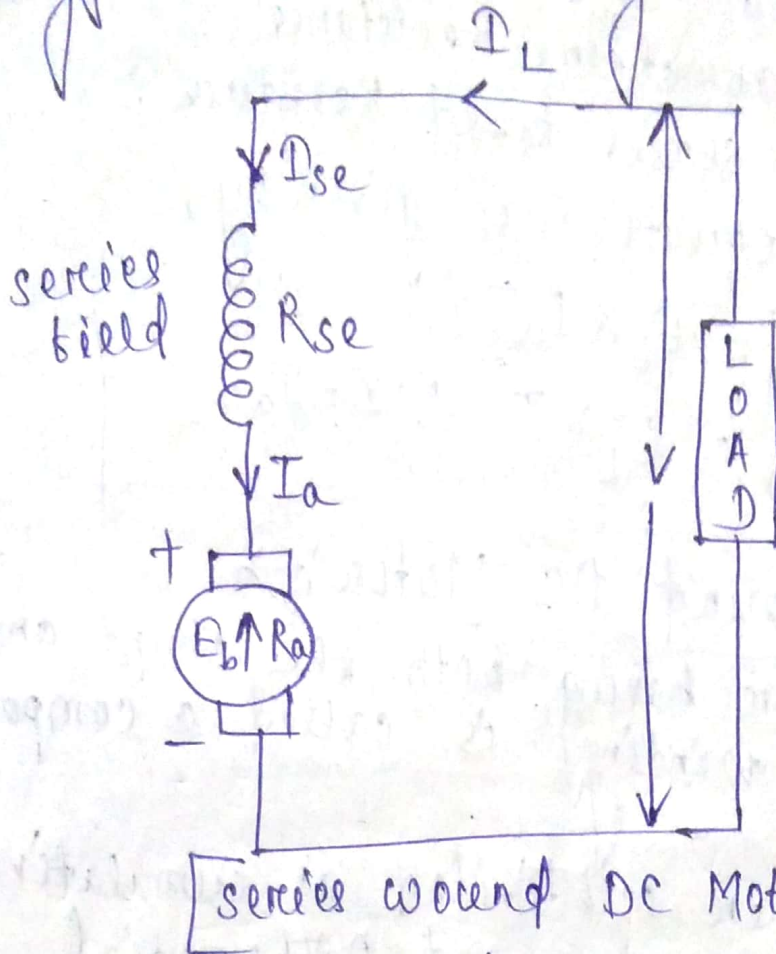 I_L
I_se
series
field
R_se
I_a
V
L
O
A
D
+
E_b↑ R_a
−
series wound DC Mot